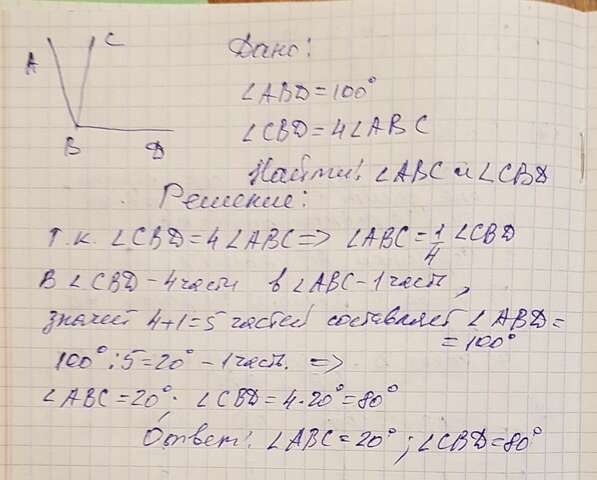 A C
B D
Дано:
∠ABD = 100°
∠CBD = 4∠ABC
Найти: ∠ABC и ∠CBD
Решение:
т.к. ∠CBD = 4∠ABC => ∠ABC = 1/4 ∠CBD
В ∠CBD - 4 части в ∠ABC - 1 часть,
значит 4+1=5 частей составляет ∠ABD =
= 100°
100° : 5 = 20° - 1 часть. =>
∠ABC = 20°. ∠CBD = 4·20° = 80°
Ответ: ∠ABC = 20°; ∠CBD = 80°